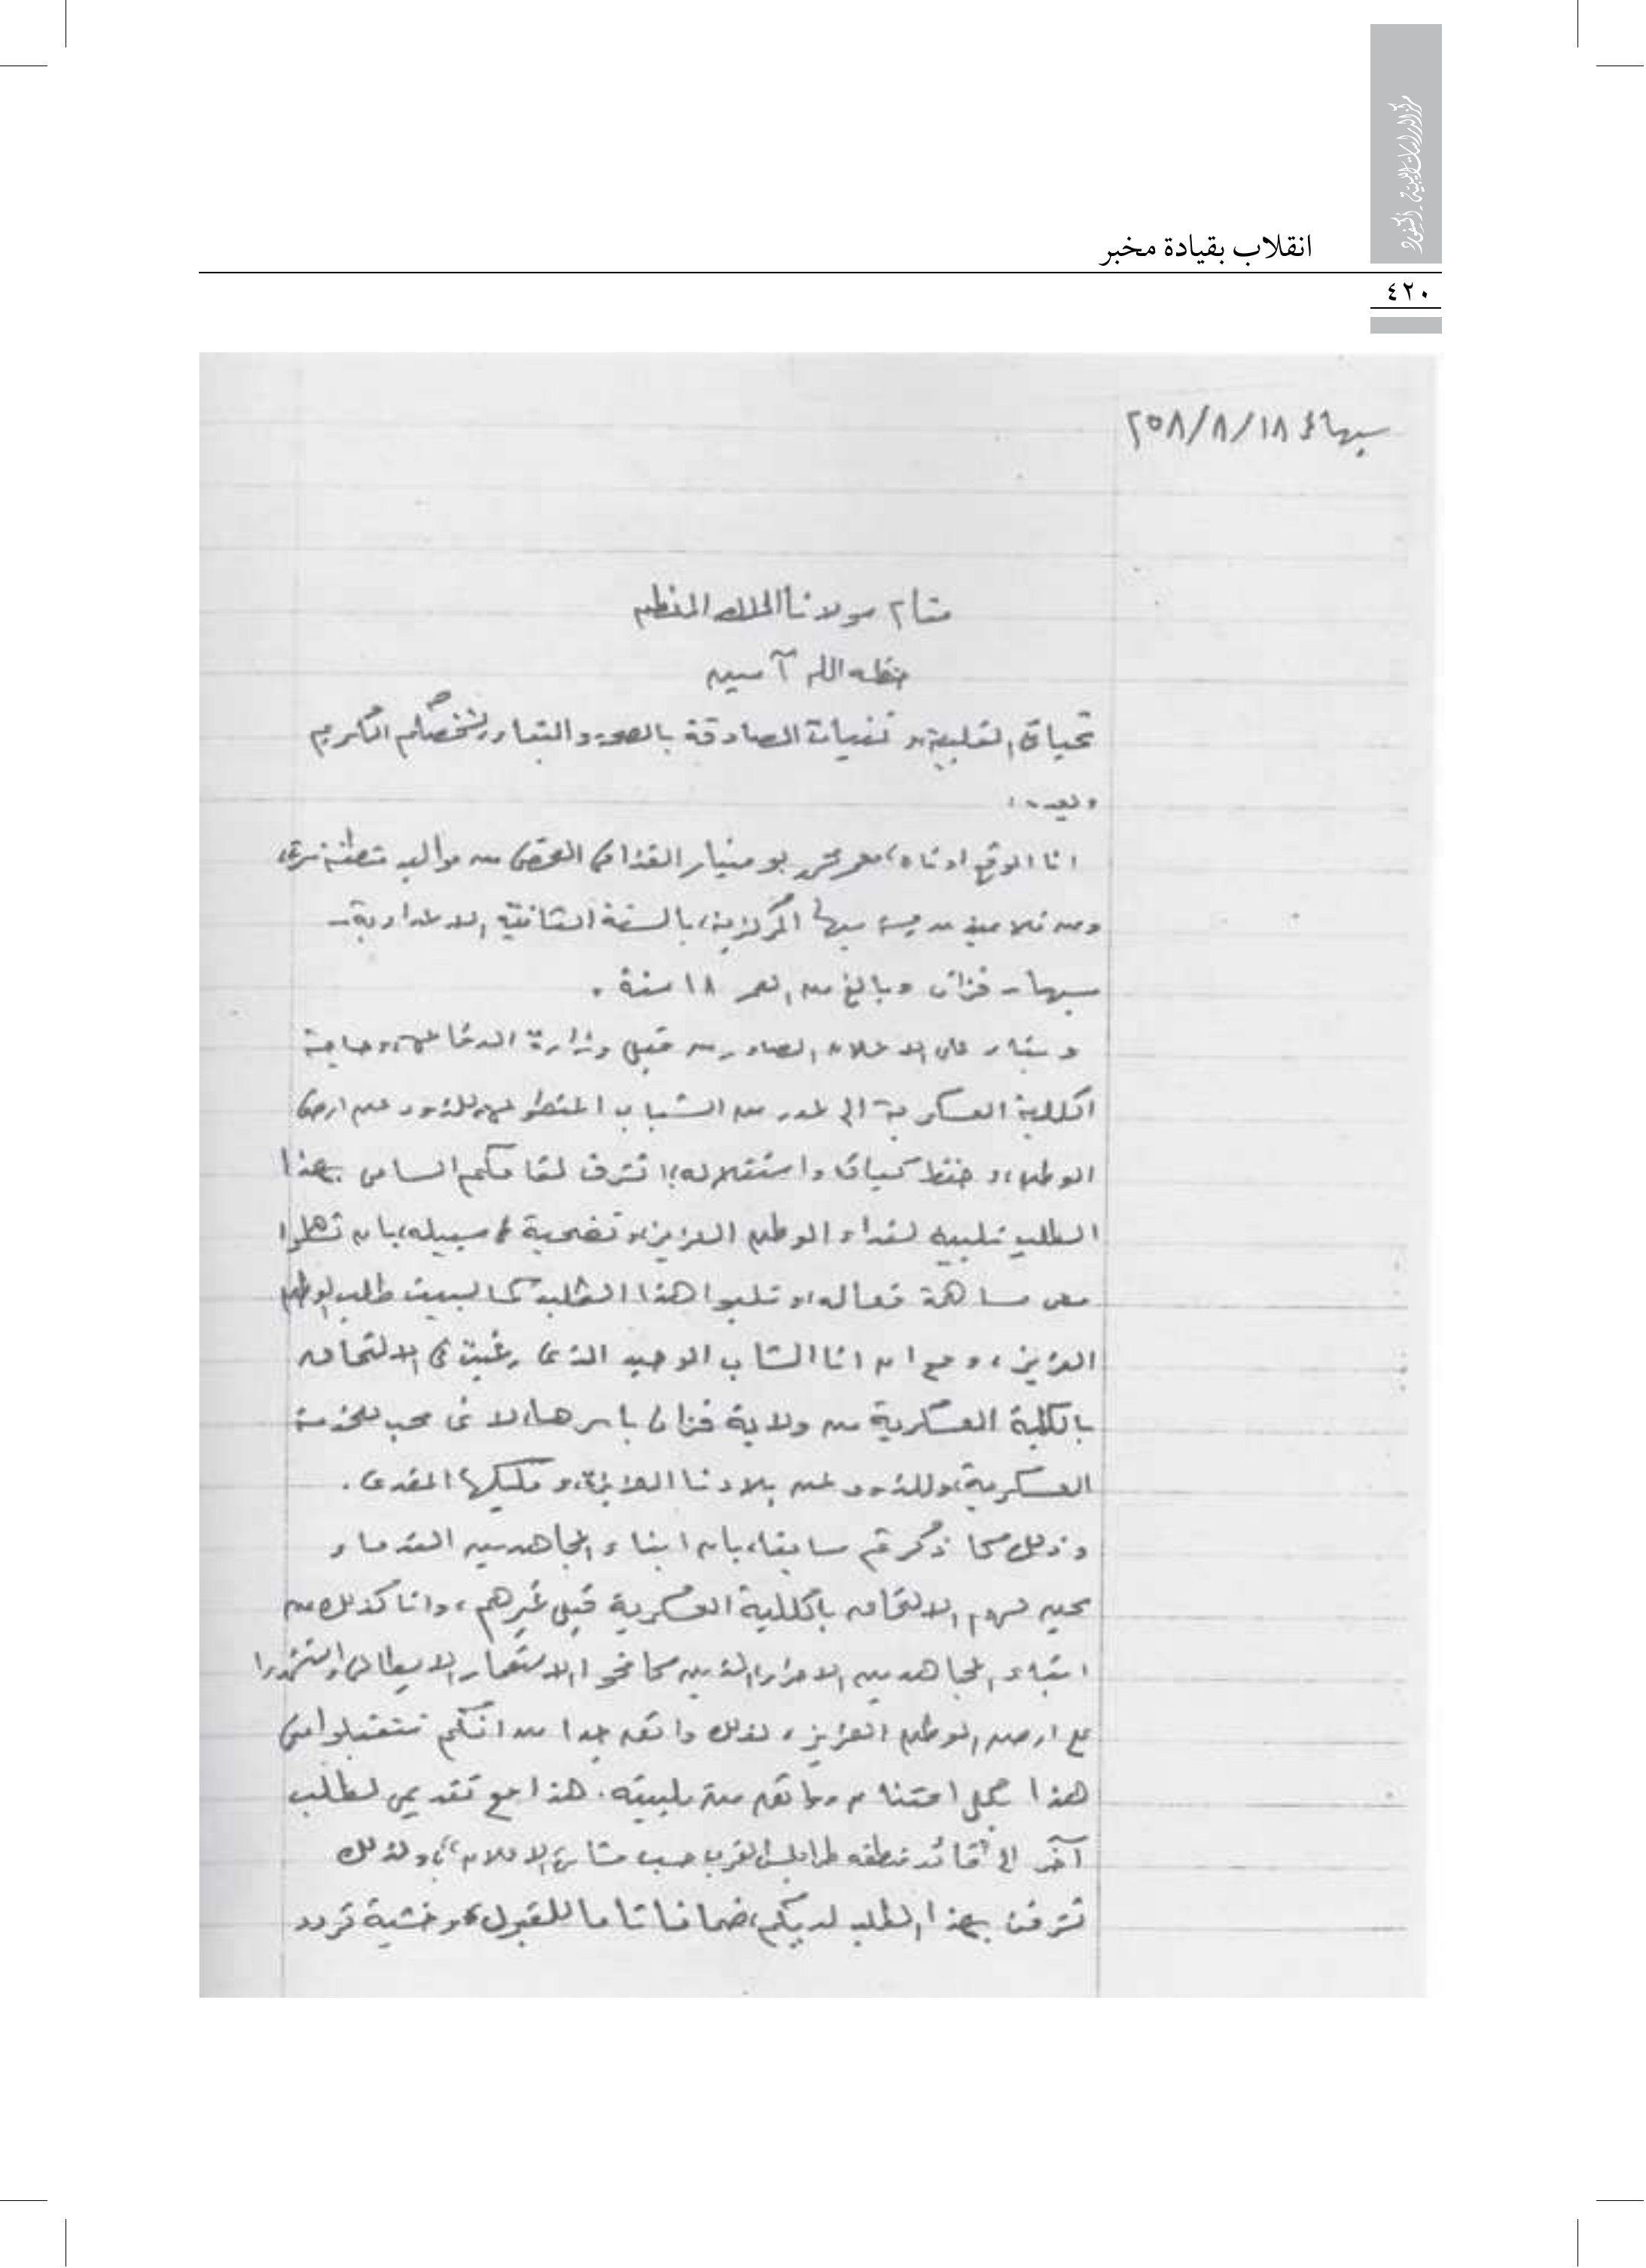 مركز الدراسات الليبية - أكسفورد
انقلاب بقيادة مخبر
٤٢٠
سبها في ٢٥٨/٨/١٨
مقام مولانا الملك المعظم
حفظه الله آمين
تحياتى القلبية وتمنياتى الصادقة بالصحة والبقاء لشخصكم الكريم
وبعد :
انا الموقع ادناه، معمر بو منيار القذافى من مواليد منطقة سرت،
ومن تلاميذ مدرسة سبها المركزية، بالسنة الثانية الاعدادية -
سبها - فزان وبالغ من العمر ١٨ سنة .
وبناء على الاعلان الصادر من قبل وزارة الدفاع، وحاجة
الكلية العسكرية الى عدد من الشباب المتطوع، للذود عن ارض
الوطن، وحفظ كيانه واستقلاله، اتشرف لمقامكم السامى بهذا
الطلب تلبيه لنداء الوطن العزيز، وتضحية فى سبيله، بان تساهموا
معى مساهمة فعاله، وتلبوا هذا الطلب كما لبيت طلب الوطن
العزيز، ومع ان انا الشاب الوحيد الذى رغبت فى الالتحاق
بالكلية العسكرية من ولاية فزان باسرها، لانى محب للخدمة
العسكرية، وللذود عن بلادنا العزيزة، ومليكها المفدى .
وذلك كما ذكرتم سابقا، بان ابناء المجاهدين القدماء
يحق لهم الالتحاق بالكلية العسكرية قبل غيرهم، وانا كذلك من
ابناء المجاهدين الاحرار الذين كافحوا الاستعمار الايطالى واستشهدوا
على ارض الوطن العزيز، لذلك واثق جدا من انكم ستتقبلوا منى
هذا بكل امتنان وواثق من تلبيته . هذا مع تقديمى لطلب
آخر الى "قائد منطقه طرابلس الغرب حسب الاعلان"، ولذلك
تشرفت بهذا الطلب لديكم، ضمانا تاما للقبول، وخشية تردد